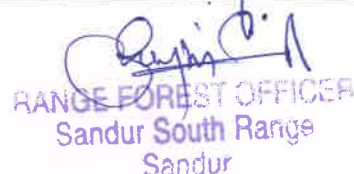 RANGE FOREST OFFICER
Sandur South Range
Sandur